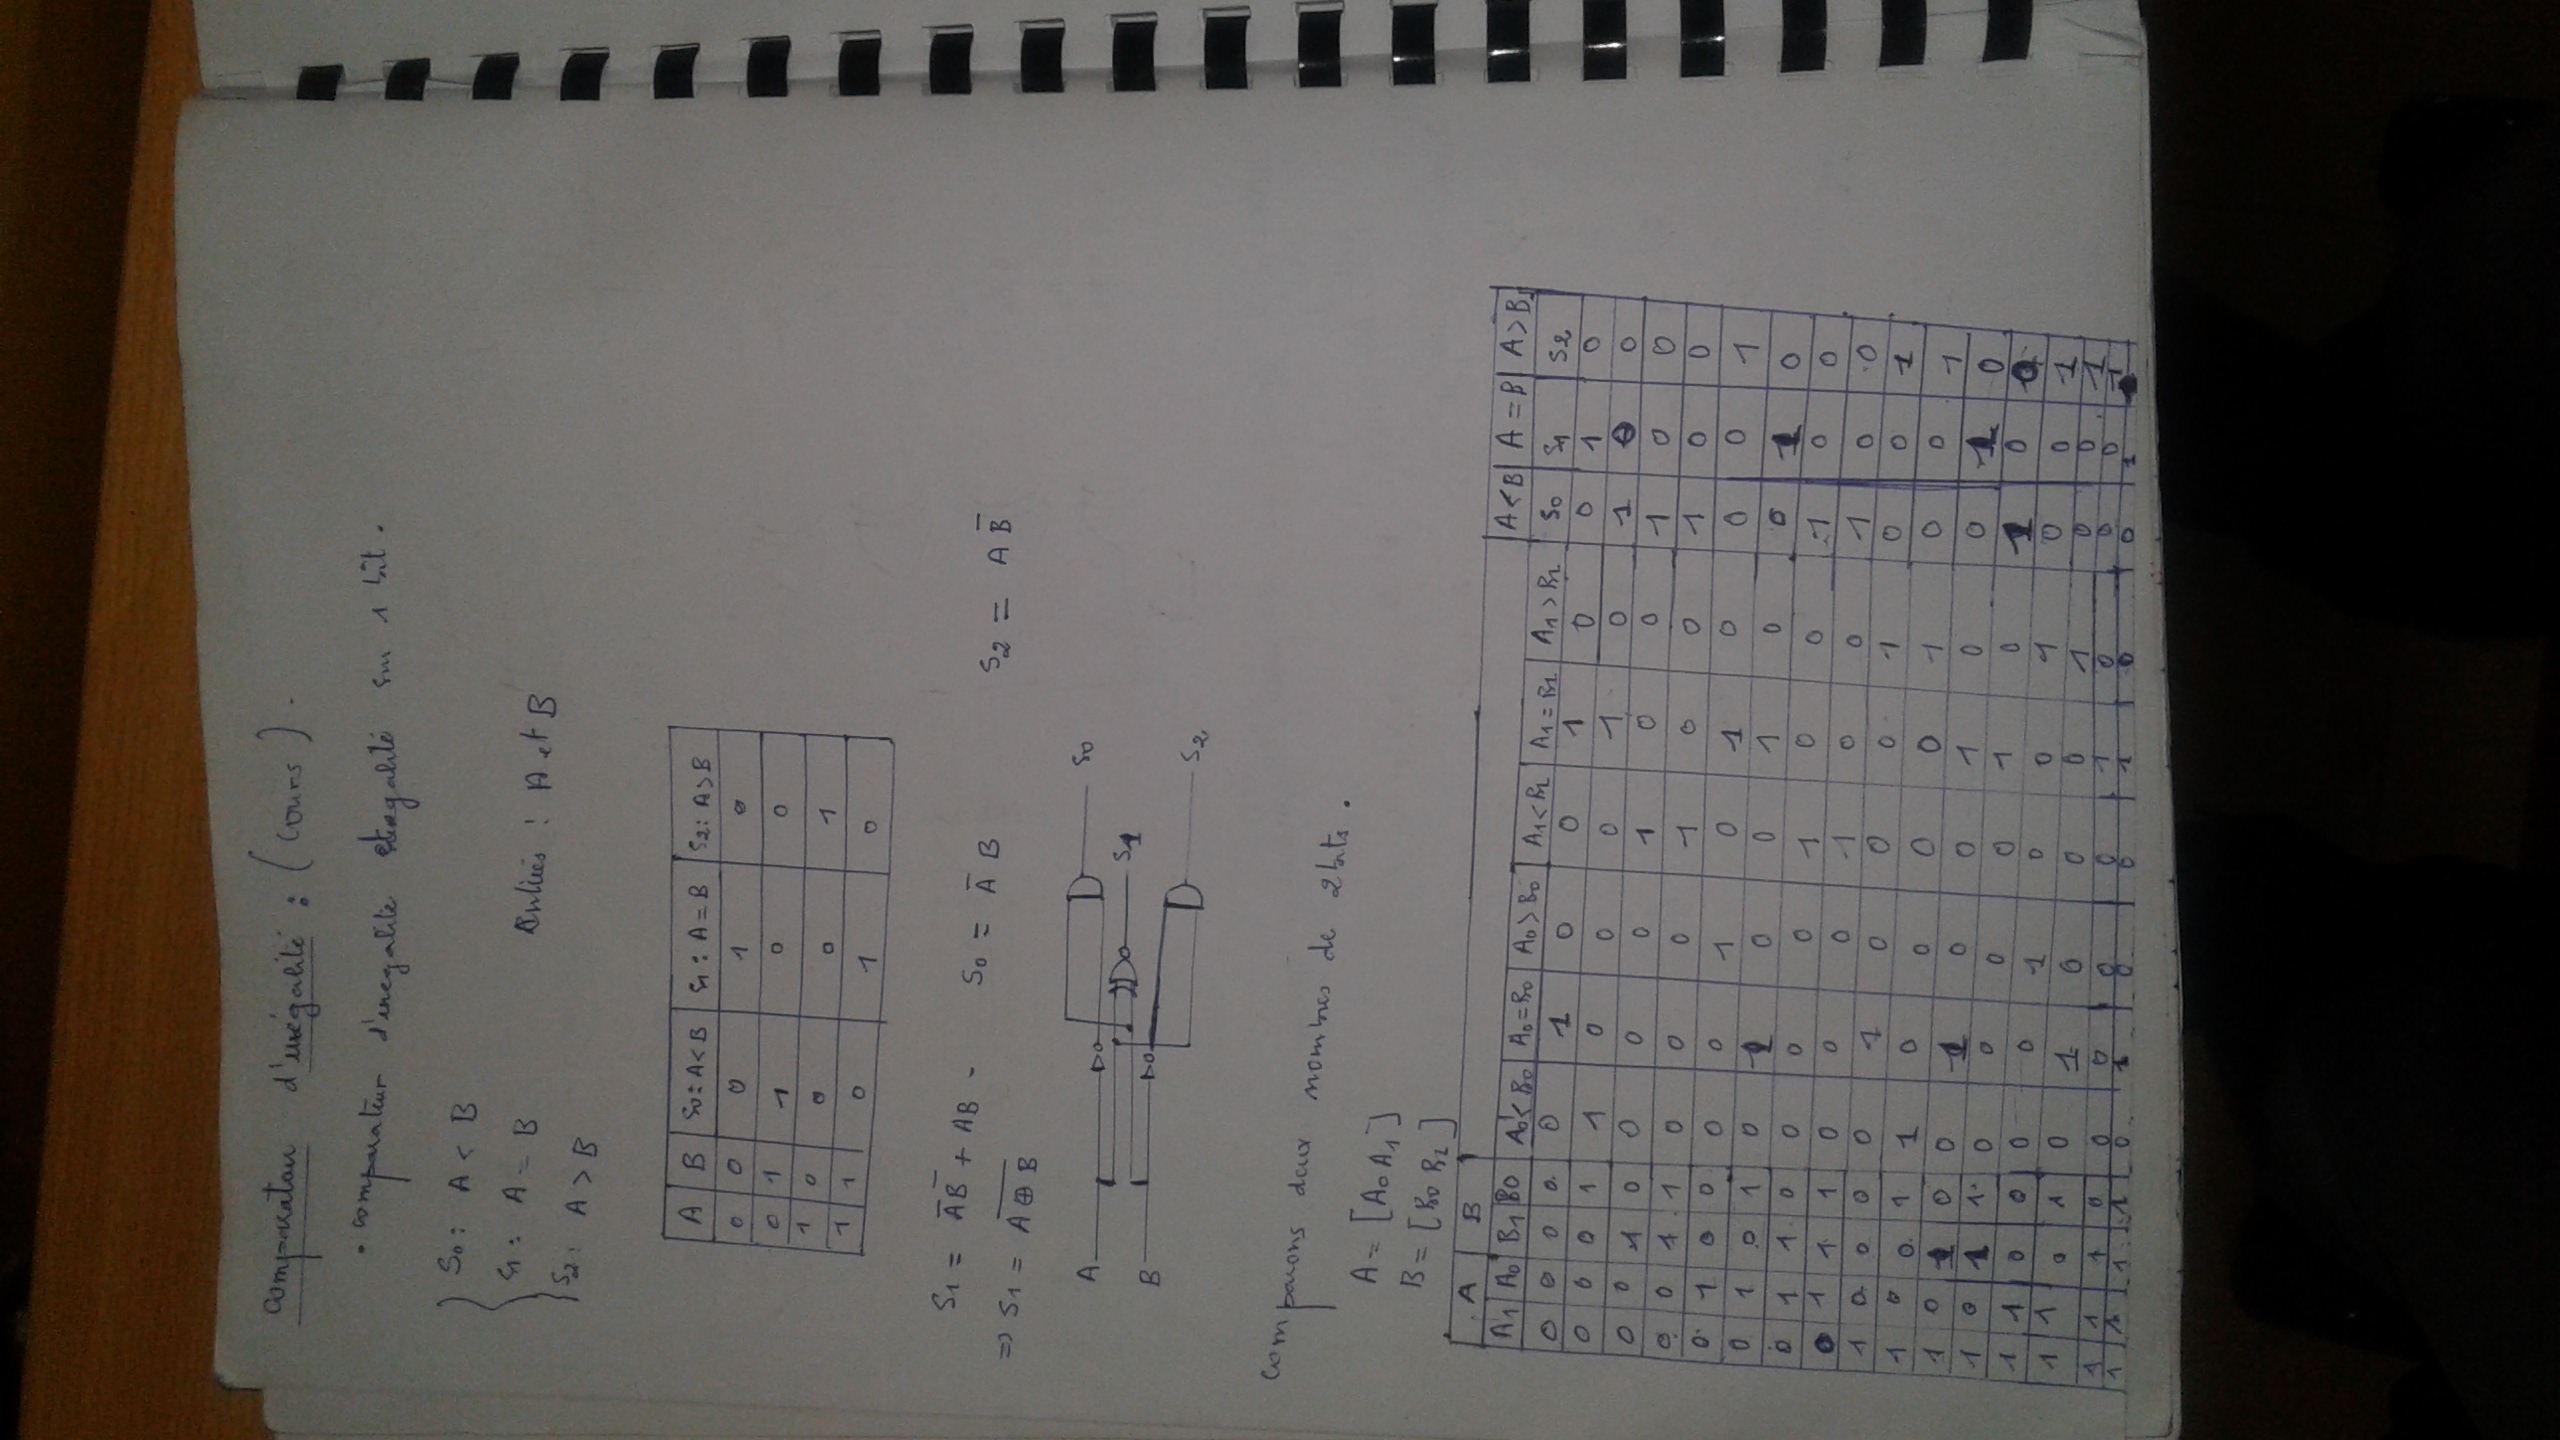 comparateur d'inégalité : (Cours).
• comparateur d'inegalité et egalité sur 1 bit.
S0 : A < B
S1 : A = B
Entrées : A et B
S2 : A > B
A B S0 : A < B S1 : A = B S2 : A > B
0 0 0 1 0
0 1 1 0 0
1 0 0 0 1
1 1 0 1 0
S1 = A̅B̅ + AB - S0 = A̅ B S2 = A B̅
=> S1 = \overline{A ⊕ B}
A S0
S1
B S2
comparons deux nombres de 2 bits.
A = [A0 A1]
B = [B0 B1]
A B
A1 A0 B1 B0 A0 < B0 A0 = B0 A0 > B0 A1 < B1 A1 = B1 A1 > B1 A < B A = B A > B
S0 S1 S2
0 0 0 0 0 1 0 0 1 0 0 1 0
0 0 0 1 1 0 0 0 1 0 1 0 0
0 0 1 0 0 0 0 1 0 0 1 0 0
0 0 1 1 0 0 0 1 0 0 1 0 0
0 1 0 0 0 0 1 0 1 0 0 0 1
0 1 0 1 0 1 0 0 1 0 0 1 0
0 1 1 0 0 0 0 1 0 0 1 0 0
0 1 1 1 0 0 0 1 0 0 1 0 0
1 0 0 0 0 1 0 0 0 1 0 0 1
1 0 0 1 1 0 0 0 0 1 0 0 1
1 0 1 0 0 1 0 0 1 0 0 1 0
1 0 1 1 0 0 0 0 1 0 1 0 0
1 1 0 0 0 0 1 0 0 1 0 0 1
1 1 0 1 0 1 0 0 0 1 0 0 1
1 1 1 0 0 0 0 0 1 0 0 0 1
1 1 1 1 0 1 0 0 1 0 0 1